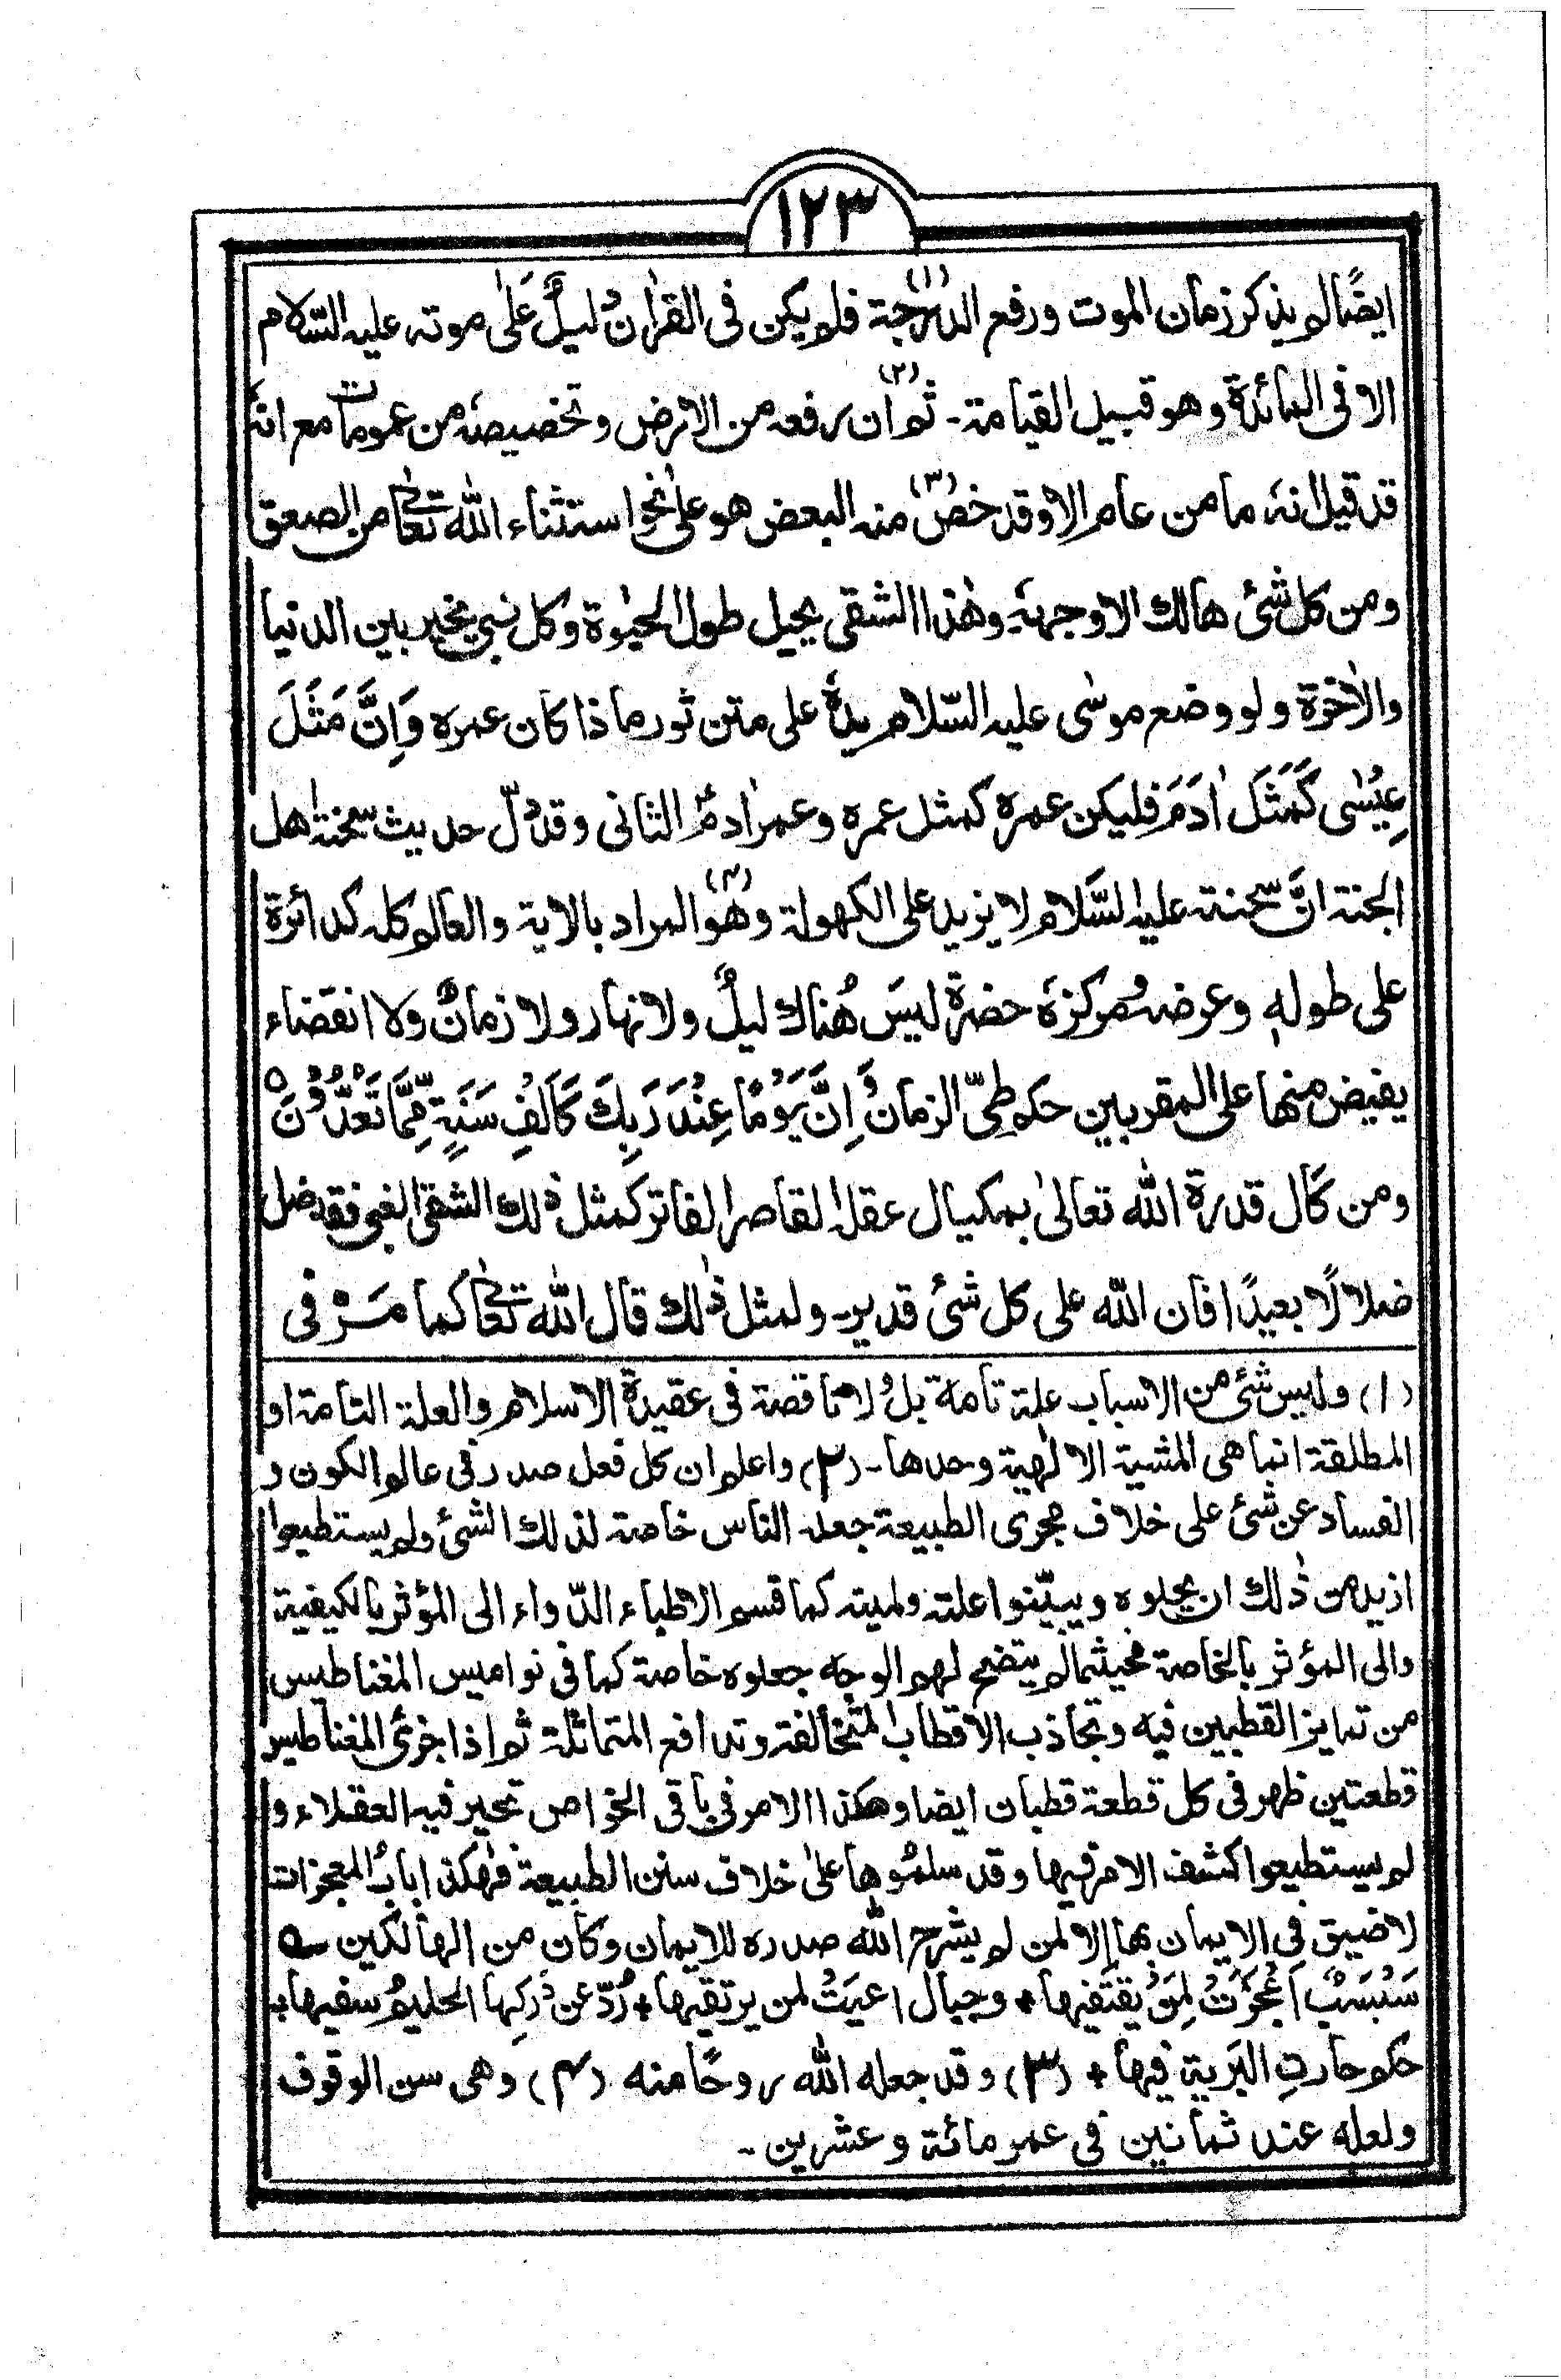 ١٢٣
ايضًا لم يذكر زمان الموت ورفع الدرجة(١) فلم يكن فى القراٰن دليلٌ عَلٰى موته عليه السّلام
الا فى المائدة وهو قبيل القيامة۔ ثم(٢) ان رفعه من الارض وتخصيصهٗ من عمومات مع انهٗ
قد قيل انهٗ ما من عام الا وقد خصّ(٣) منه البعض هو على نحو استثناء اللّٰه تعالىٰ من الصعق
ومن كل شئ هالك الا وجههٗ وهٰذا الشقى يحيل طول الحيٰوة وكل نبى يخير بين الدنيا
والاٰخرة ولو وضع موسٰى عليه السّلام يدهٗ على متن ثور ماذا كان عمره وَاِنَّ مَثَلَ
عِيْسٰى كَمَثَلِ اٰدَمَ فليكن عمره كمثل عمره وعمر اٰدمَ الثانى وقد دلّ حديث سحنة اهل
الجنة انَّ سحنته عليه السَّلام لا يزيد على الكهولة وهو(٤) المراد بالاية والعالم كله كدائرة
على طولهٖ وعرضهٖ ومركزهٗ حضرة ليسَ هُناك ليلٌ ولا نهار ولا زمانٌ ولا انقضاء
يفيض منها على المقربين حكم طىّ الزمان وَاِنَّ يَوْمًا عِنْدَ رَبِكَ كَاَلْفِ سَنَةٍ مِّمَّا تَعُدُّوْنَ ۝
ومن كال قدرة اللّٰه تعالىٰ بمكيال عقله القاصر الفاتر كمثل ذلك الشقى الغبى فقد ضل
ضلالًا بعيدًا فان اللّٰه على كل شئ قدير۔ ولمثل ذٰلك قال اللّٰه تعالىٰ كما مَرَّ فى
(١) وليس شئ من الاسباب علة تامة بل ولا ناقصة فى عقيدة الاسلام والعلة التامة او
المطلقة انما هى المشية الالٰهية وحدها۔ (٢) واعلم ان كل فعل صدر فى عالم الكون و
الفساد عن شئ على خلاف مجرى الطبيعة جعله الناس خاصة لذلك الشئ ولم يستطيعوا
ازيد من ذٰلك ان يحلوه ويبيّنوا علته ولميته كما قسم الاطباء الدّواء الى المؤثر بالكيفية
والى المؤثر بالخاصة فحيثما لم يتضح لهم الوجه جعلوه خاصة كما فى نواميس المغناطيس
من تمايز القطبين فيه وتجاذب الاقطاب المتخالفة وتدافع المتماثلة ثم اذا جزئ المغناطيس
قطعتين ظهر فى كل قطعة قطبان ايضا وهكذا الامر فى باقى الخواص تحير فيه العقلاء و
لم يستطيعوا كشف الامر فيها وقد سلموها علىٰ خلاف سنن الطبيعة فهكذا باب المعجزات
لا ضيق فى الايمان بها الا لمن لم يشرح اللّٰه صدره للايمان وكان من الهالكين ؎
سَبْسَبٌ اَعْجَزَتْ لِمَنْ يقتفيها ٭ وجبال اعيَتْ لمن يرتقيها ٭ رُدّ عن دَركِها الحليمُ سفيها ٭
حكم حارتِ البَرية فيها ٭ (٣) وقد جعله اللّٰه روحًا منه (٤) وهى سن الوقوف
ولعله عند ثمانين فى عمر مائة وعشرين۔